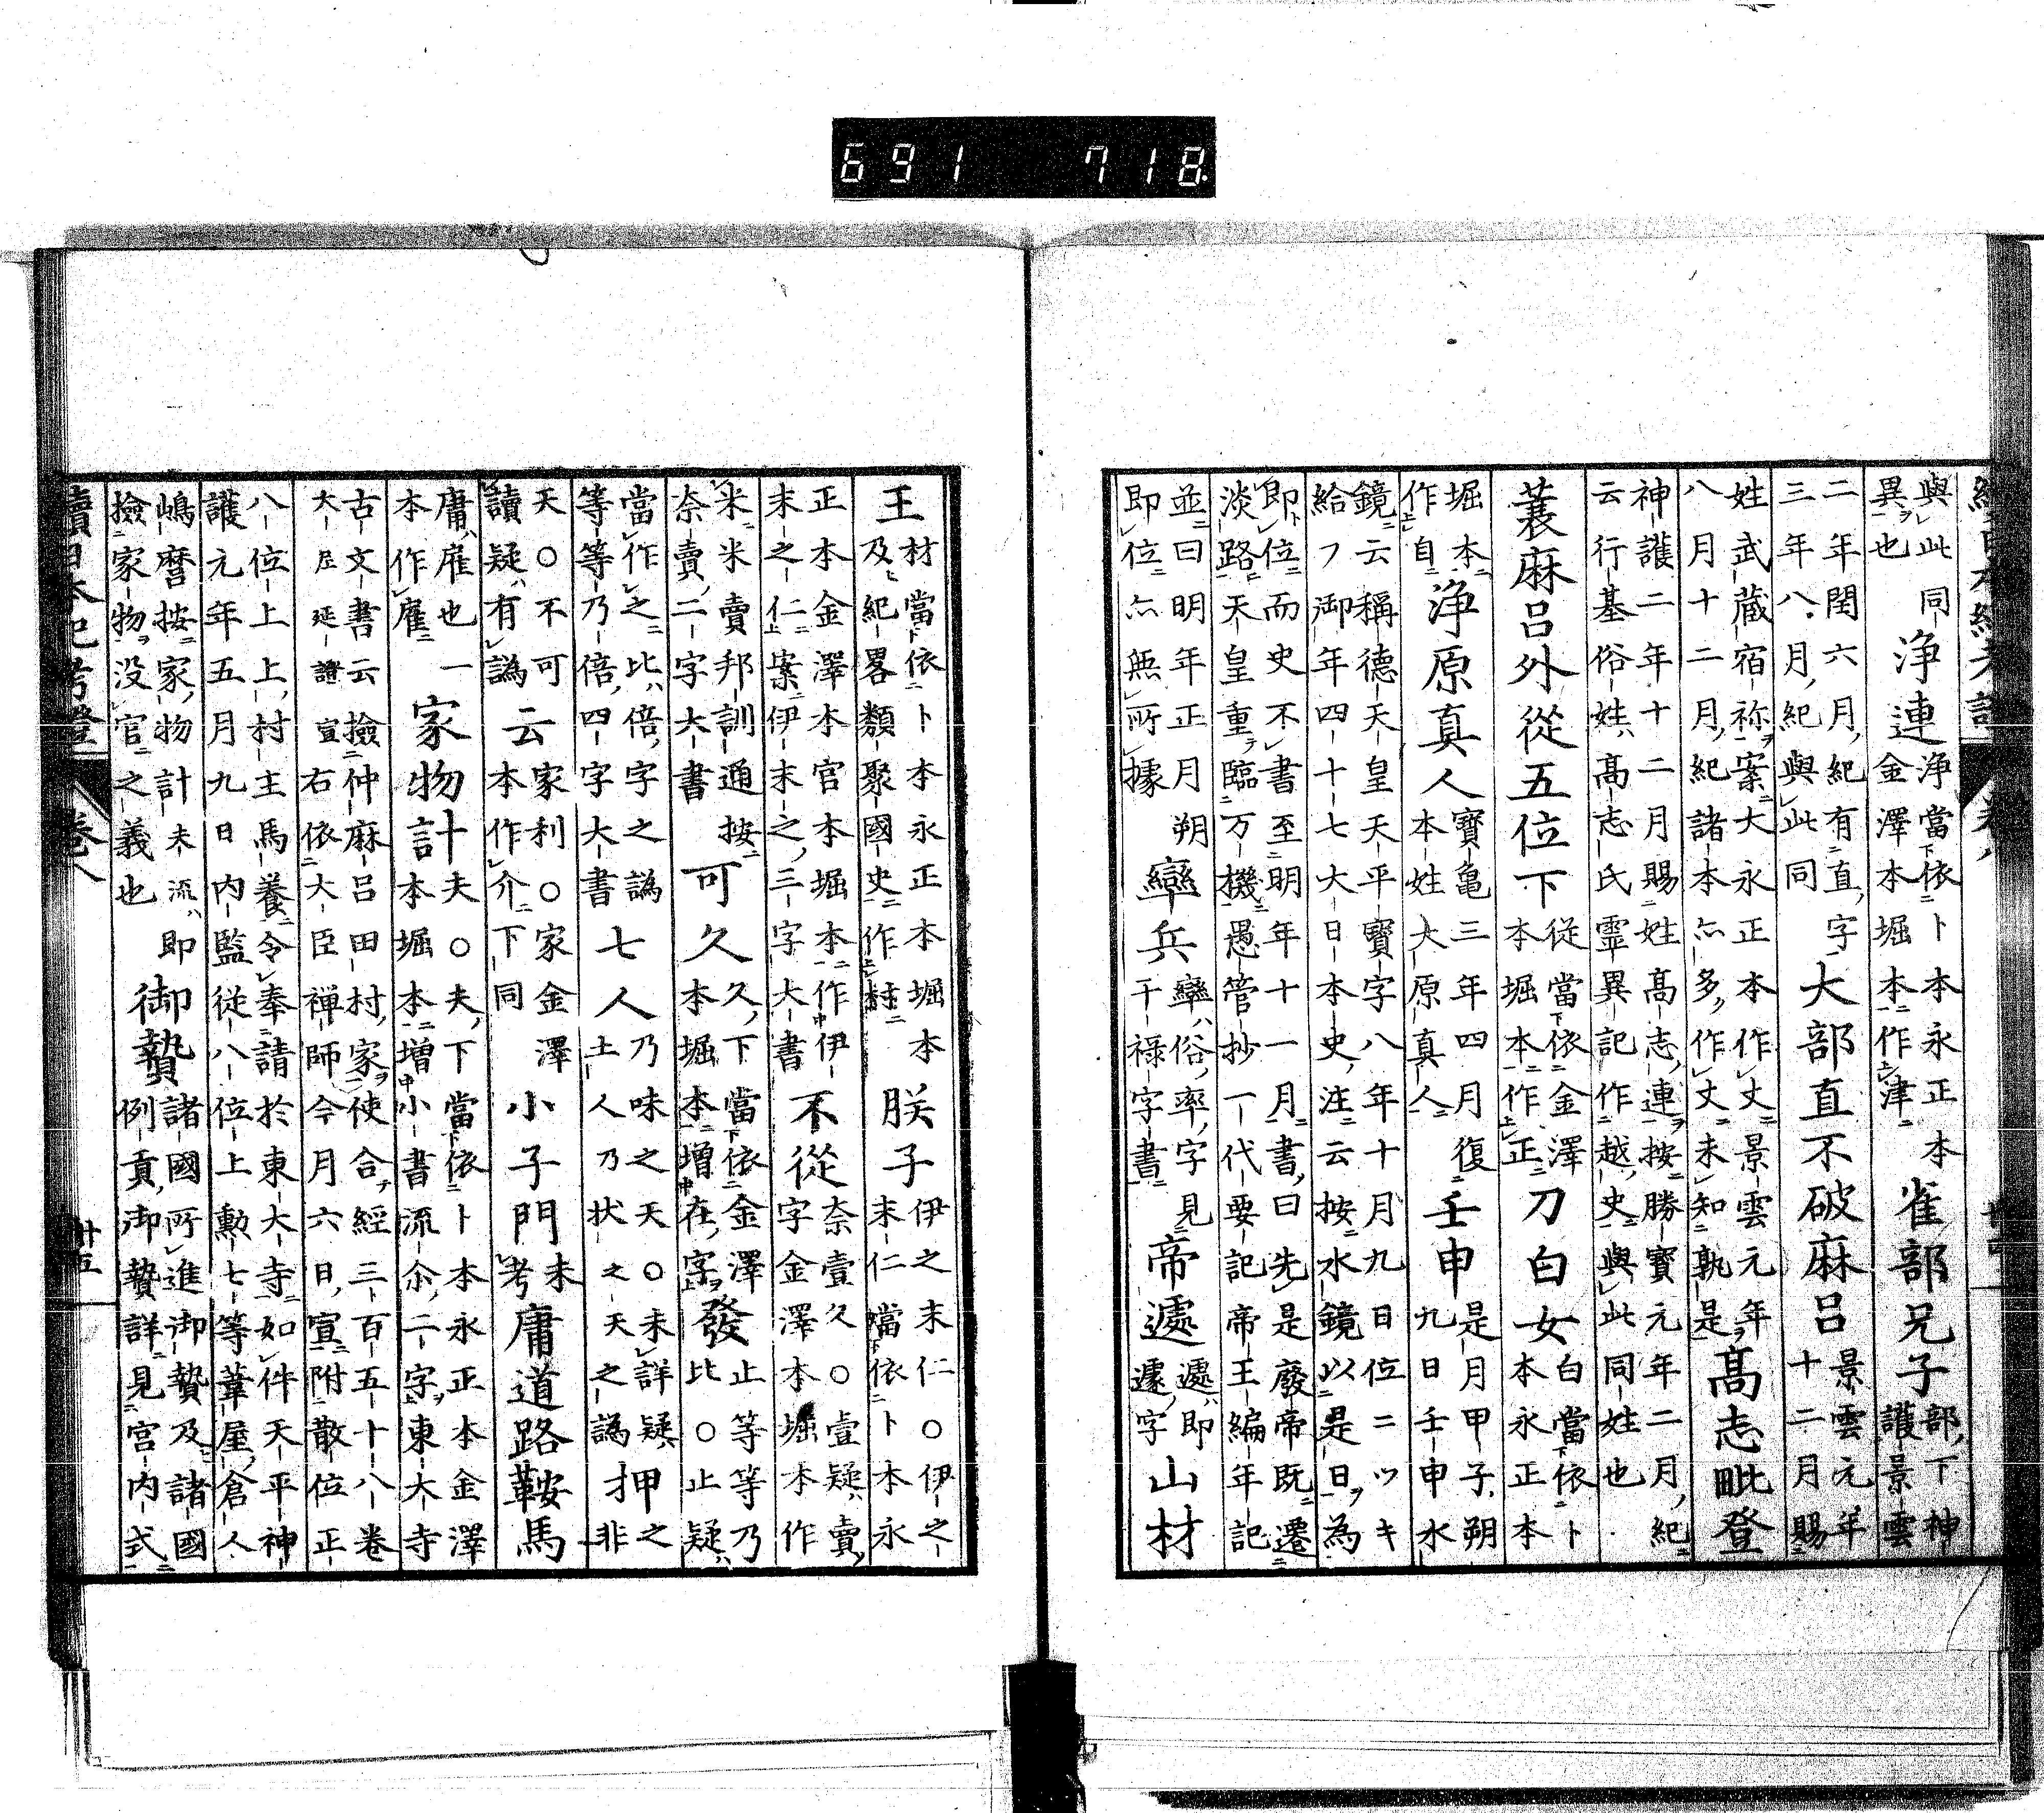 691 718
與此同
異也
浄連
浄當依卜本永正本
金澤本堀本作津
雀部兄子
部下神
護景雲
二年閏六月紀有直字
三年八月紀與此同
大部直不破麻呂
景雲元年
十二月賜
姓武蔵宿祢案大永正本作丈景雲元年
八月十二月紀諸本亦多作丈未知孰是
高志毗登
神護二年十二月賜姓高志連按勝寶元年二月紀
云行基俗姓高志氏霊異記作越史與此同姓也
蓑麻呂外從五位下
從當依金澤
本堀本作正
刀自女
白當依卜
本永正本
堀本
作自
浄原真人
寶亀三年四月復
本姓大原真人
壬申
是月甲子朔
九日壬申水
鏡云稱德天皇天平寶字八年十月九日位ニツキ
給フ御年四十七大日本史注云按水鏡以是日為
即位而史不書至明年十一月書曰先是廢帝既遷
淡路天皇重臨万機愚管抄一代要記帝王編年記
並曰明年正月朔
即位亦無所據
攣兵
攣俗率字見
干祿字書
帝遽
遽即
遽字
山材
王
材當依卜本永正本堀本
及紀畧類聚國史作村
朕子
伊之末仁○伊之
末仁當依卜本永
正本金澤本官本堀本作伊
末之仁案伊末之三字大書
不從
奈壹久○壹疑賣
字金澤本堀本作
米米賣邦訓通按
奈賣二字大書
可久
久下當依金澤
本堀本増在字
發
止等等乃
比○止疑
當作之比倍字之譌
等等乃倍四字大書
七人
乃味之天○未詳疑
土人乃状之天之譌
押之
才非
天○不可
讀疑有譌
云
家利○家金澤
本作介下同
小子門
未
考
庸道路鞍馬
庸雇也一
本作雇
家物計
夫○夫下當依卜本永正本金澤
本堀本増小書流尒二字東大寺
古文書云撿仲麻呂田村家使合經三百五十八卷
大尼延證宣右依大臣禅師今月六日宣附散位正
八位上上村主馬養令奉請於東大寺如件天平神
護元年五月九日内監従八位上勲七等葦屋倉人
嶋麿按家物計未流即
撿家物没官之義也
御贄
諸國所進御贄及諸國
例貢御贄詳見宮内式
續日本紀考證
卷八
廿五